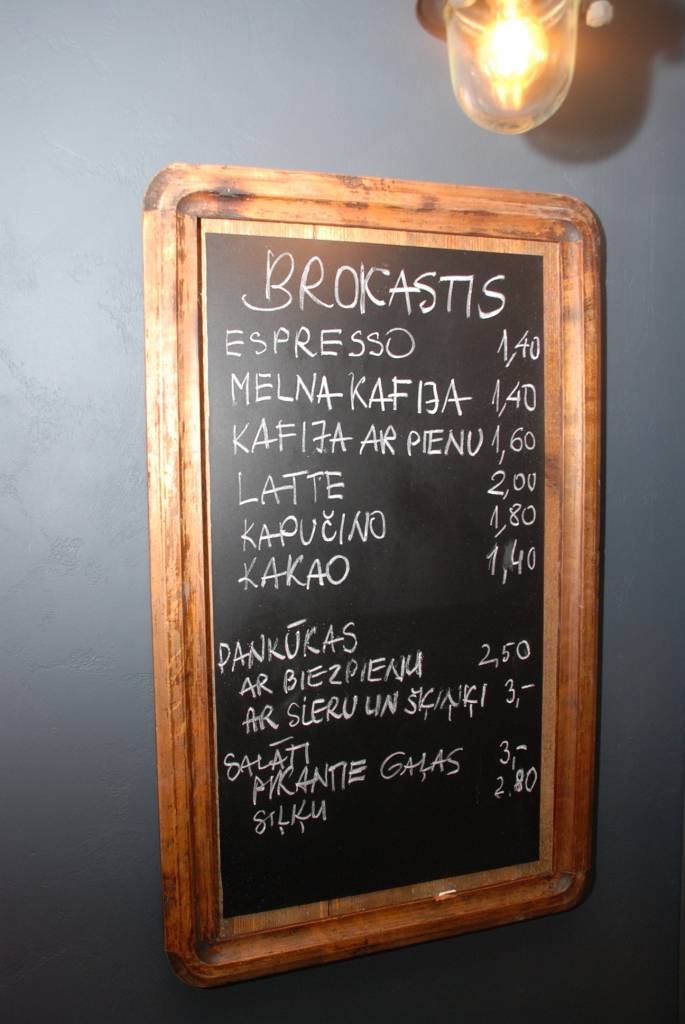 BROKASTIS
ESPRESSO 1,40
MELNA KAFIJA 1,40
KAFIJA AR PIENU 1,60
LATTE 2,00
KAPUČINO 1,80
KAKAO 1,40
PANKŪKAS
AR BIEZPIENU 2,50
AR SIERU UN ŠĶIŅĶI 3,-
SALĀTI
PIKANTIE GAĻAS 3,-
SIĻĶU 2.80